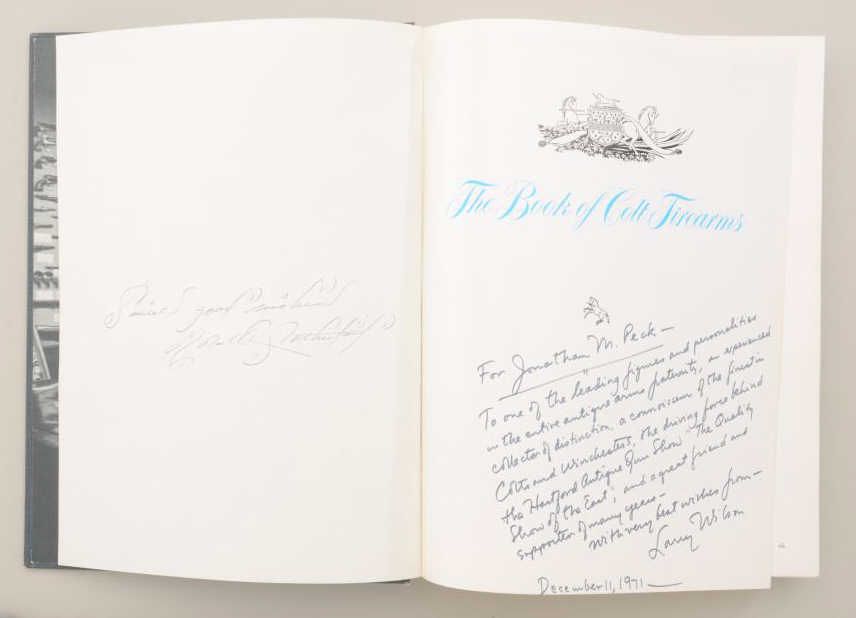 good
The Book of Colt Firearms
For Jonathan M. Peck —
To one of the leading figures and personalities
in the entire antique arms fraternity, an experienced
collector of distinction, a connoisseur of the finest in
Colts and Winchesters, the driving force behind
the Hartford Antique Gun Show "The Quality
Show of the East", and a great friend and
supporter of many years —
With very best wishes from —
Larry Wilson
December 11, 1971 —